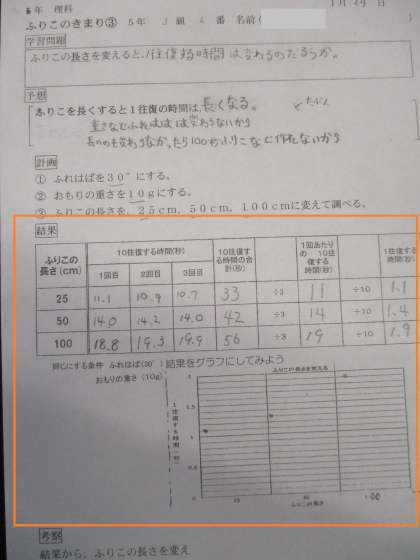 5年 理科
1月 24日
ふりこのきまり③ 5年 J組 4番 名前(
学習問題
ふりこの長さを変えると、1往復する時間は変わるのだろうか。
予想
ふりこを長くすると1往復の時間は、長くなる。
重さなどふれはばは変わらないから
長いのも変わらなかったら100秒ふりこなど作れないから
計画
① ふれはばを30°にする。
② おもりの重さを10gにする。
③ ふりこの長さを、25cm、50cm、100cmに変えて調べる。
結果
ふりこの長さ(cm) 10往復する時間(秒) 10往復する時間の合計(秒) 1回あたりの 10往復する時間(秒) 1往復する時間(秒)
1回目 2回目 3回目
25 11.1 10.9 10.7 33 ÷3 11 ÷10 1.1
50 14.0 14.2 14.0 42 ÷3 14 ÷10 1.4
100 18.8 19.3 19.9 56 ÷3 19 ÷10 1.9
同じにする条件 ふれはば(30°)
おもりの重さ(10g)
結果をグラフにしてみよう
ふりこの長さを変える
1往復する時間(秒)
2
1.5
1
0.5
0
25 50 100
ふりこの長さ
考察
結果から、ふりこの長さを変え